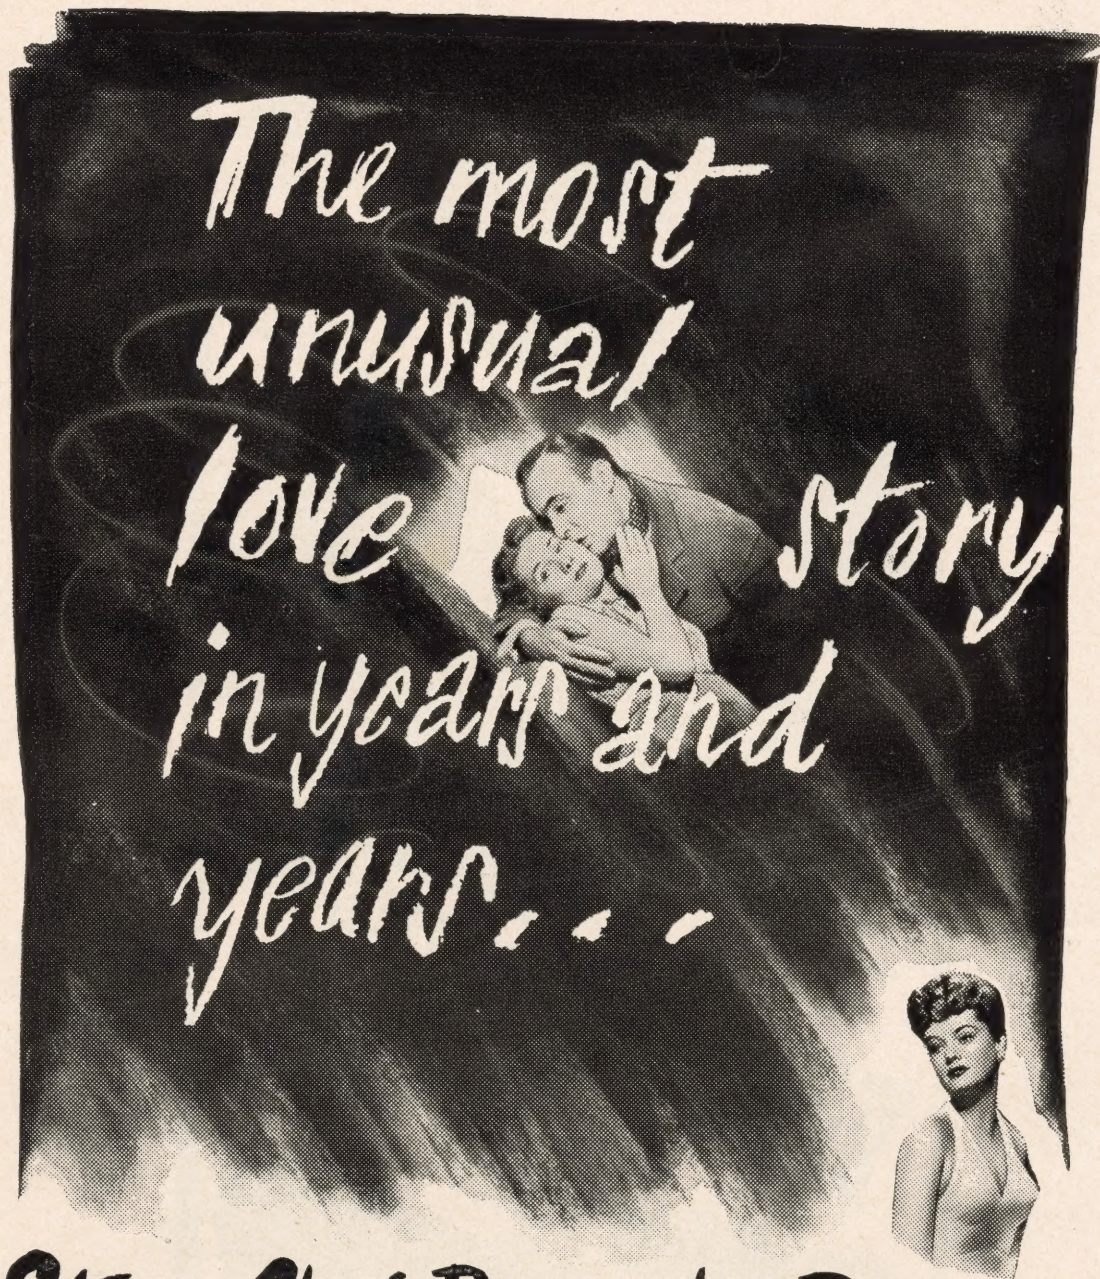 The most
unusual
love story
in years and
years...